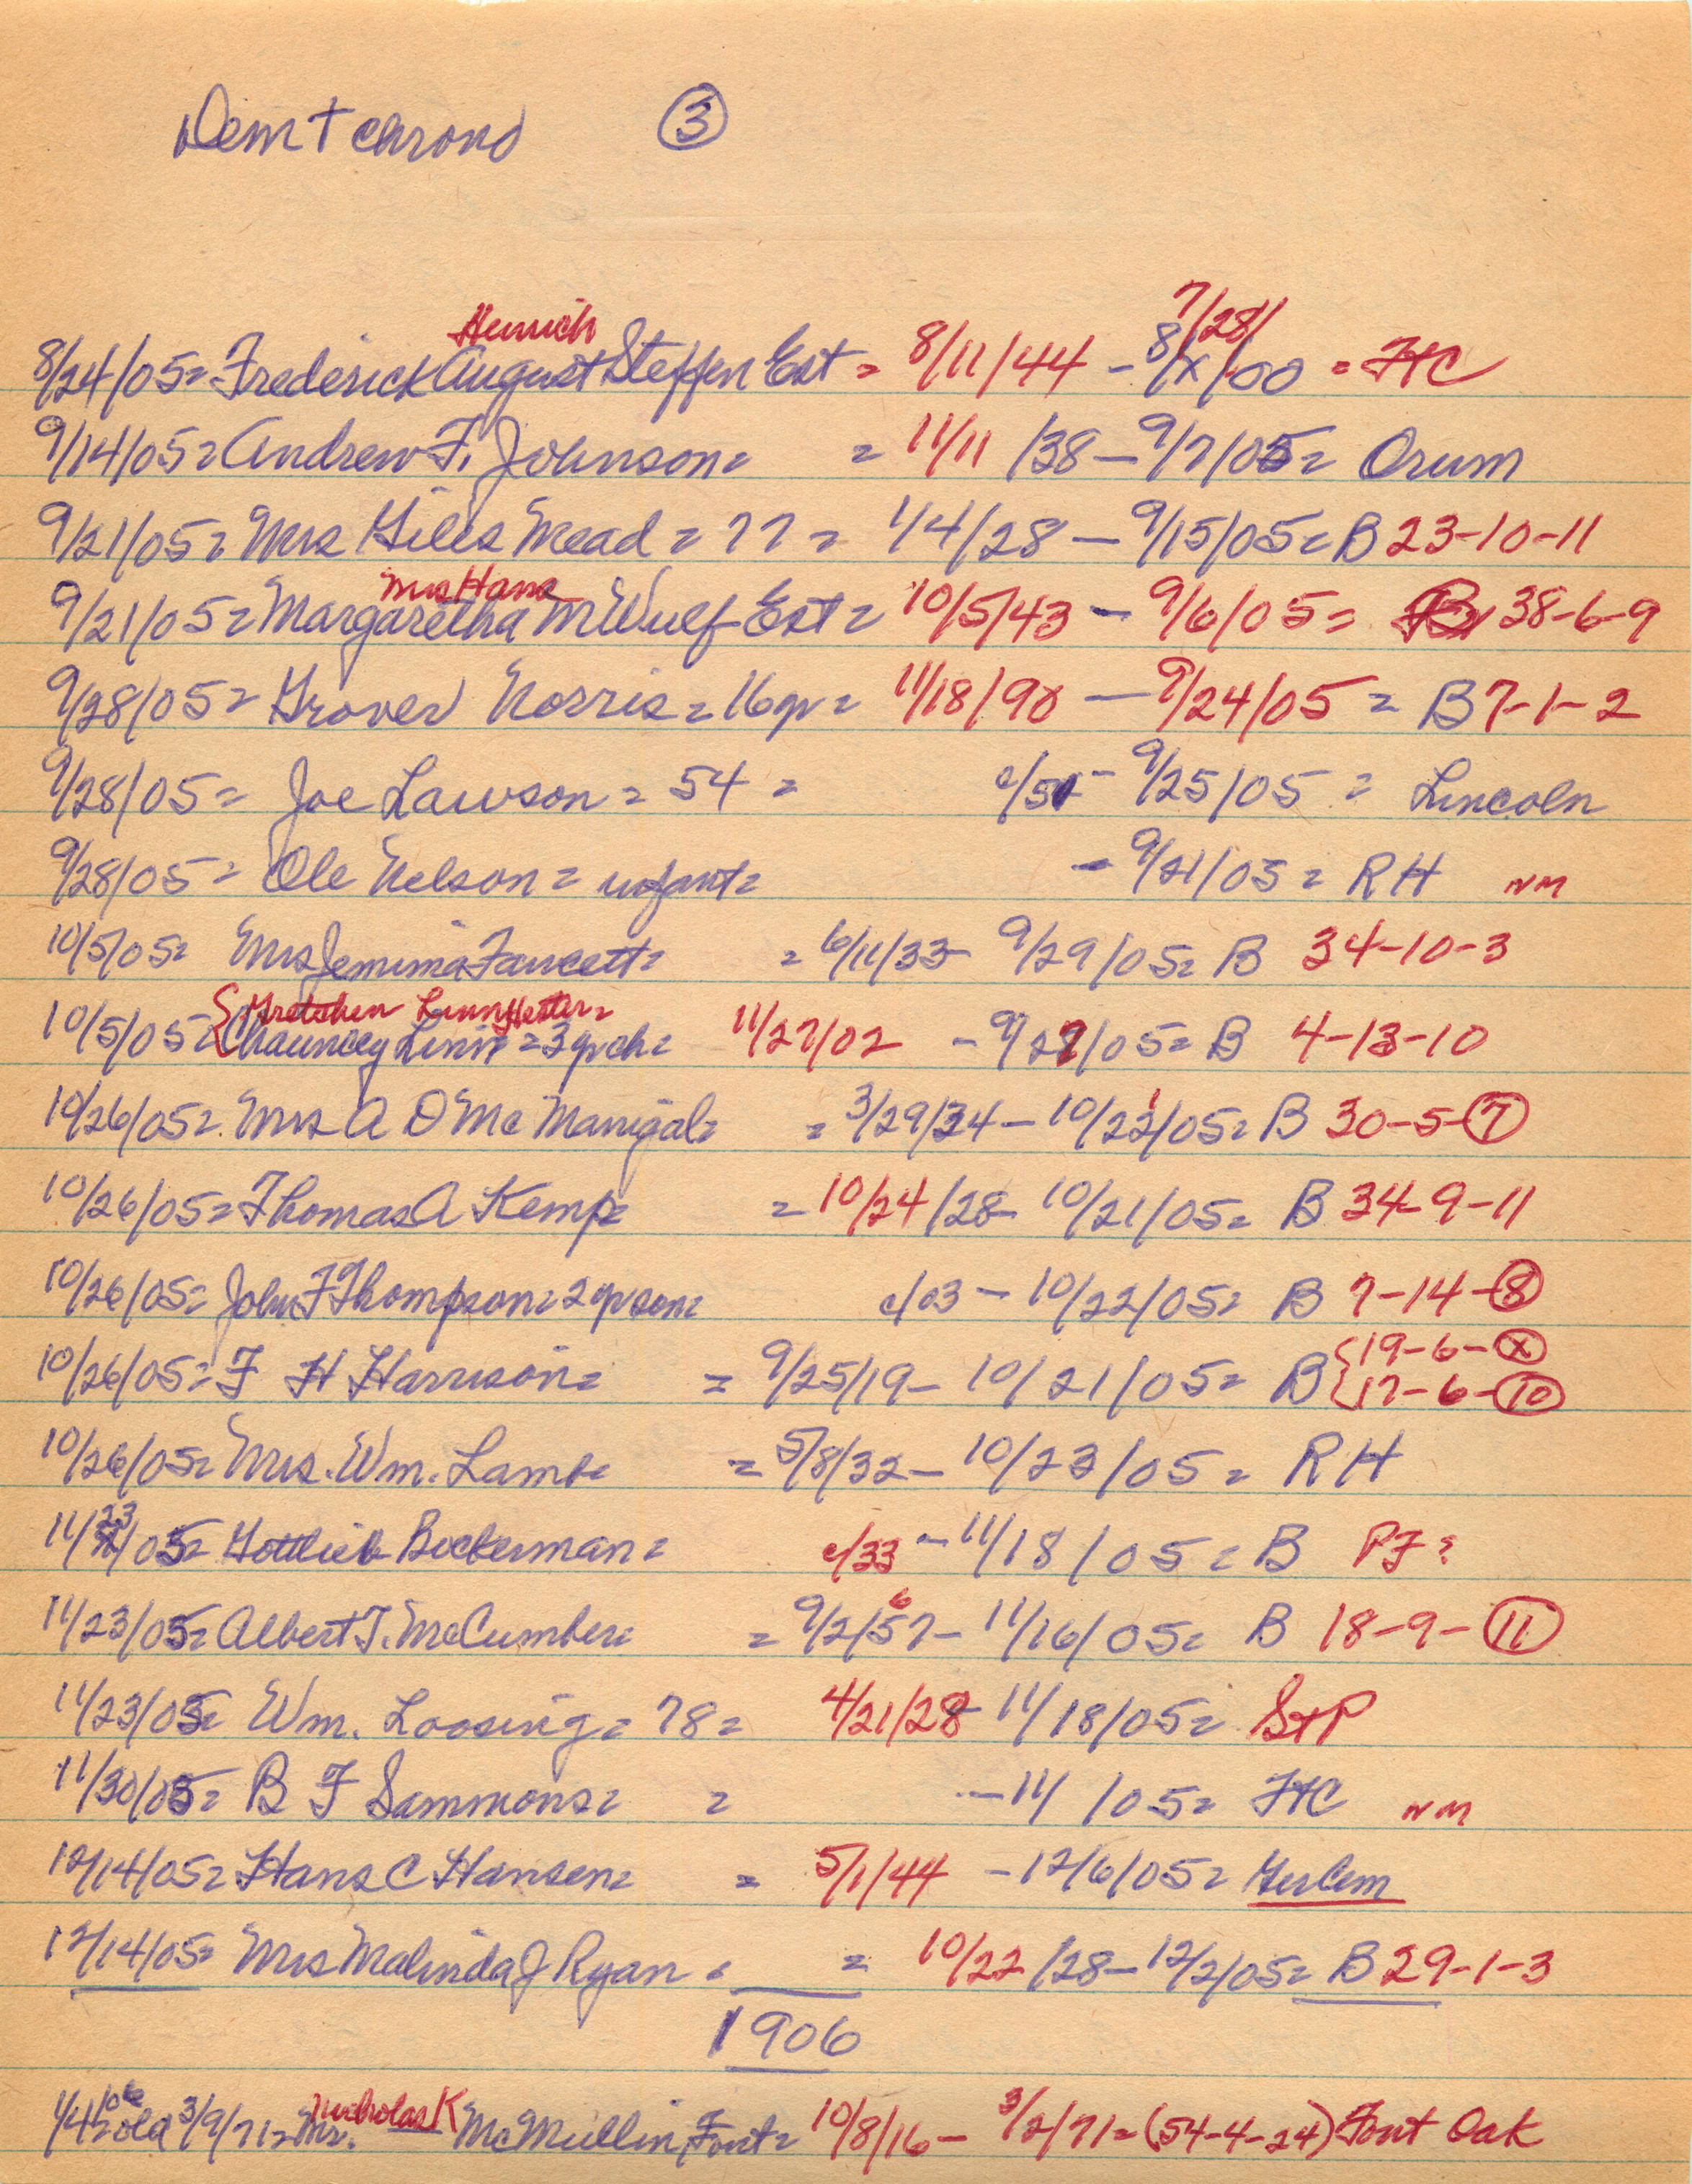 Dem + chrono ③
Heinrich 7/28/
8/24/05= Frederick August Steffen Est = 8/11/44 - 8/x/00 = FtC
9/14/05= Andrew F. Johnson= = 11/11/38 - 9/7/05= Orum
9/21/05= Mrs Giles Mead = 77 = 1/4/28 - 9/15/05= B 23-10-11
Mrs Hans
9/21/05= Margaretha M Wulf Est= 10/5/43 - 9/6/05= 38-6-9
9/28/05= Grover Norris = 16 yr = 11/18/90 - 9/24/05 = B 7-1-2
9/28/05= Joe Lawson = 54 = c/51 - 9/25/05 = Lincoln
9/28/05= Ole Nelson = infant= - 9/21/05= RH NM
10/5/05= Mrs Jemima Fawcett= = 6/11/33- 9/29/05= B 34-10-3
{Gretchen Linn Hester=
10/5/05= Chauncey Linn = 3 yr ch= 11/27/02 - 9/27/05= B 4-13-10
10/26/05= Mrs A O McManigal= = 3/29/34 - 10/22/05= B 30-5-⑦
10/26/05= Thomas A Kemp= = 10/24/28- 10/21/05= B 34-9-11
10/26/05= John F Thompson= 2 yr son= c/03 - 10/22/05= B 7-14-⑧
{19-6-Ⓧ
10/26/05= F H Harrison= = 9/25/19- 10/21/05= B {17-6-⑩
10/26/05= Mrs. Wm. Lamb= = 5/8/32- 10/23/05= RH
23
11/ /05= Gottlieb Bockerman= c/33 - 11/18/05= B PF?
6
11/23/05= Albert T. McCumber= = 9/2/57- 11/16/05= B 18-9-⑪
11/23/05= Wm. Loosing= 78= 4/21/28- 11/18/05= StP
11/30/05= B F Sammons= = - 11/ /05= FtC NM
12/14/05= Hans C Hansen= = 5/1/44 - 12/6/05=
12/14/05= Mrs Malinda J Ryan = = 10/22/28- 12/2/05= B 29-1-3
1906
06 Nicholas K
1/4/ =old 3/9/71= Mr. McMullin, Font= 10/8/16 - 3/2/71= (54-4-24) Font Oak